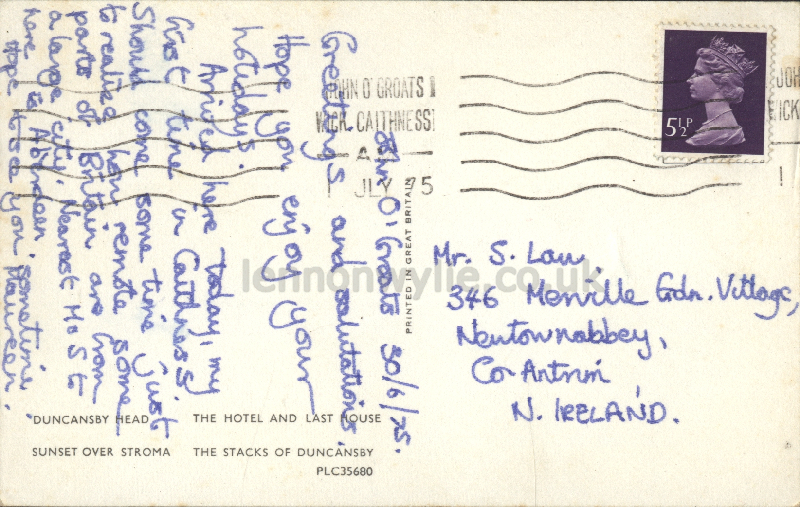 John O'Groats 30/6/75.
Greetings and salutations.
Hope you enjoy your
holidays.
Arrived here today, my
first time in Caithness,
Should come some time just
to realise how remote some
parts of Britain are from
a large city. Nearest M & S to
here is Aberdeen.
Hope to see you sometime,
Maureen.
JOHN O' GROATS
WICK. CAITHNESS
JLY 75
5½P
PRINTED IN GREAT BRITAIN
Mr. S. Law,
346 Merville Gdn. Village,
Newtownabbey,
Co Antrim
N. IRELAND.
lennonwylie.co.uk
DUNCANSBY HEAD THE HOTEL AND LAST HOUSE
SUNSET OVER STROMA THE STACKS OF DUNCANSBY
PLC35680